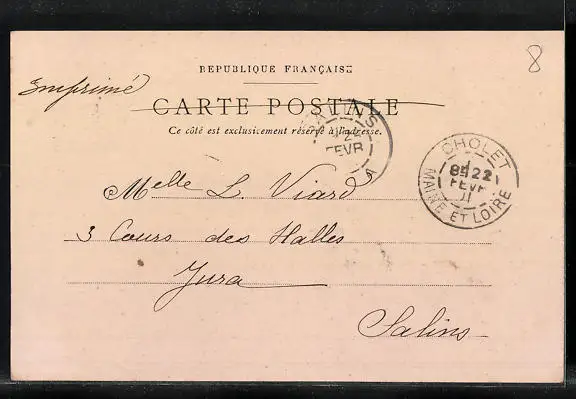 8
REPUBLIQUE FRANÇAISE
Imprimé
CARTE POSTALE
Ce côté est exclusivement réservé à l'adresse.
FEVR
CHOLET
22
FEVR
MAINE ET LOIRE
Melle L. Viard
3 Cours des Halles
Jura
Salins